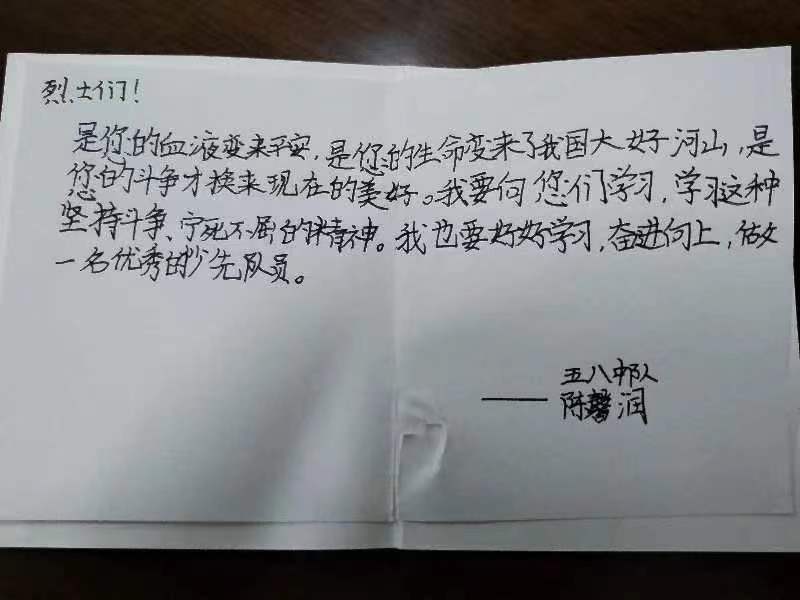 烈士们!
是您的血液变来平安,是您的生命变来了我国大好河山,是
您的斗争才换来现在的美好。我要向您们学习,学习这种
坚持斗争、宁死不屈的精神。我也要好好学习,奋进向上,做
一名优秀的少先队员。
五八中队
——陈馨润